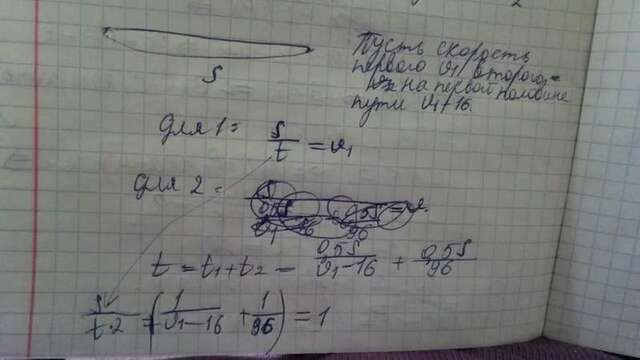 S
Пусть скорость
первого v₁, второго
v₂ на первой половине
пути v₁+16.
для 1 = S/t = v₁
для 2 =
t = t₁+t₂ = 0,5S/(v₁-16) + 0,5S/96
S/(t·2) = (1/(v₁-16) + 1/96) = 1